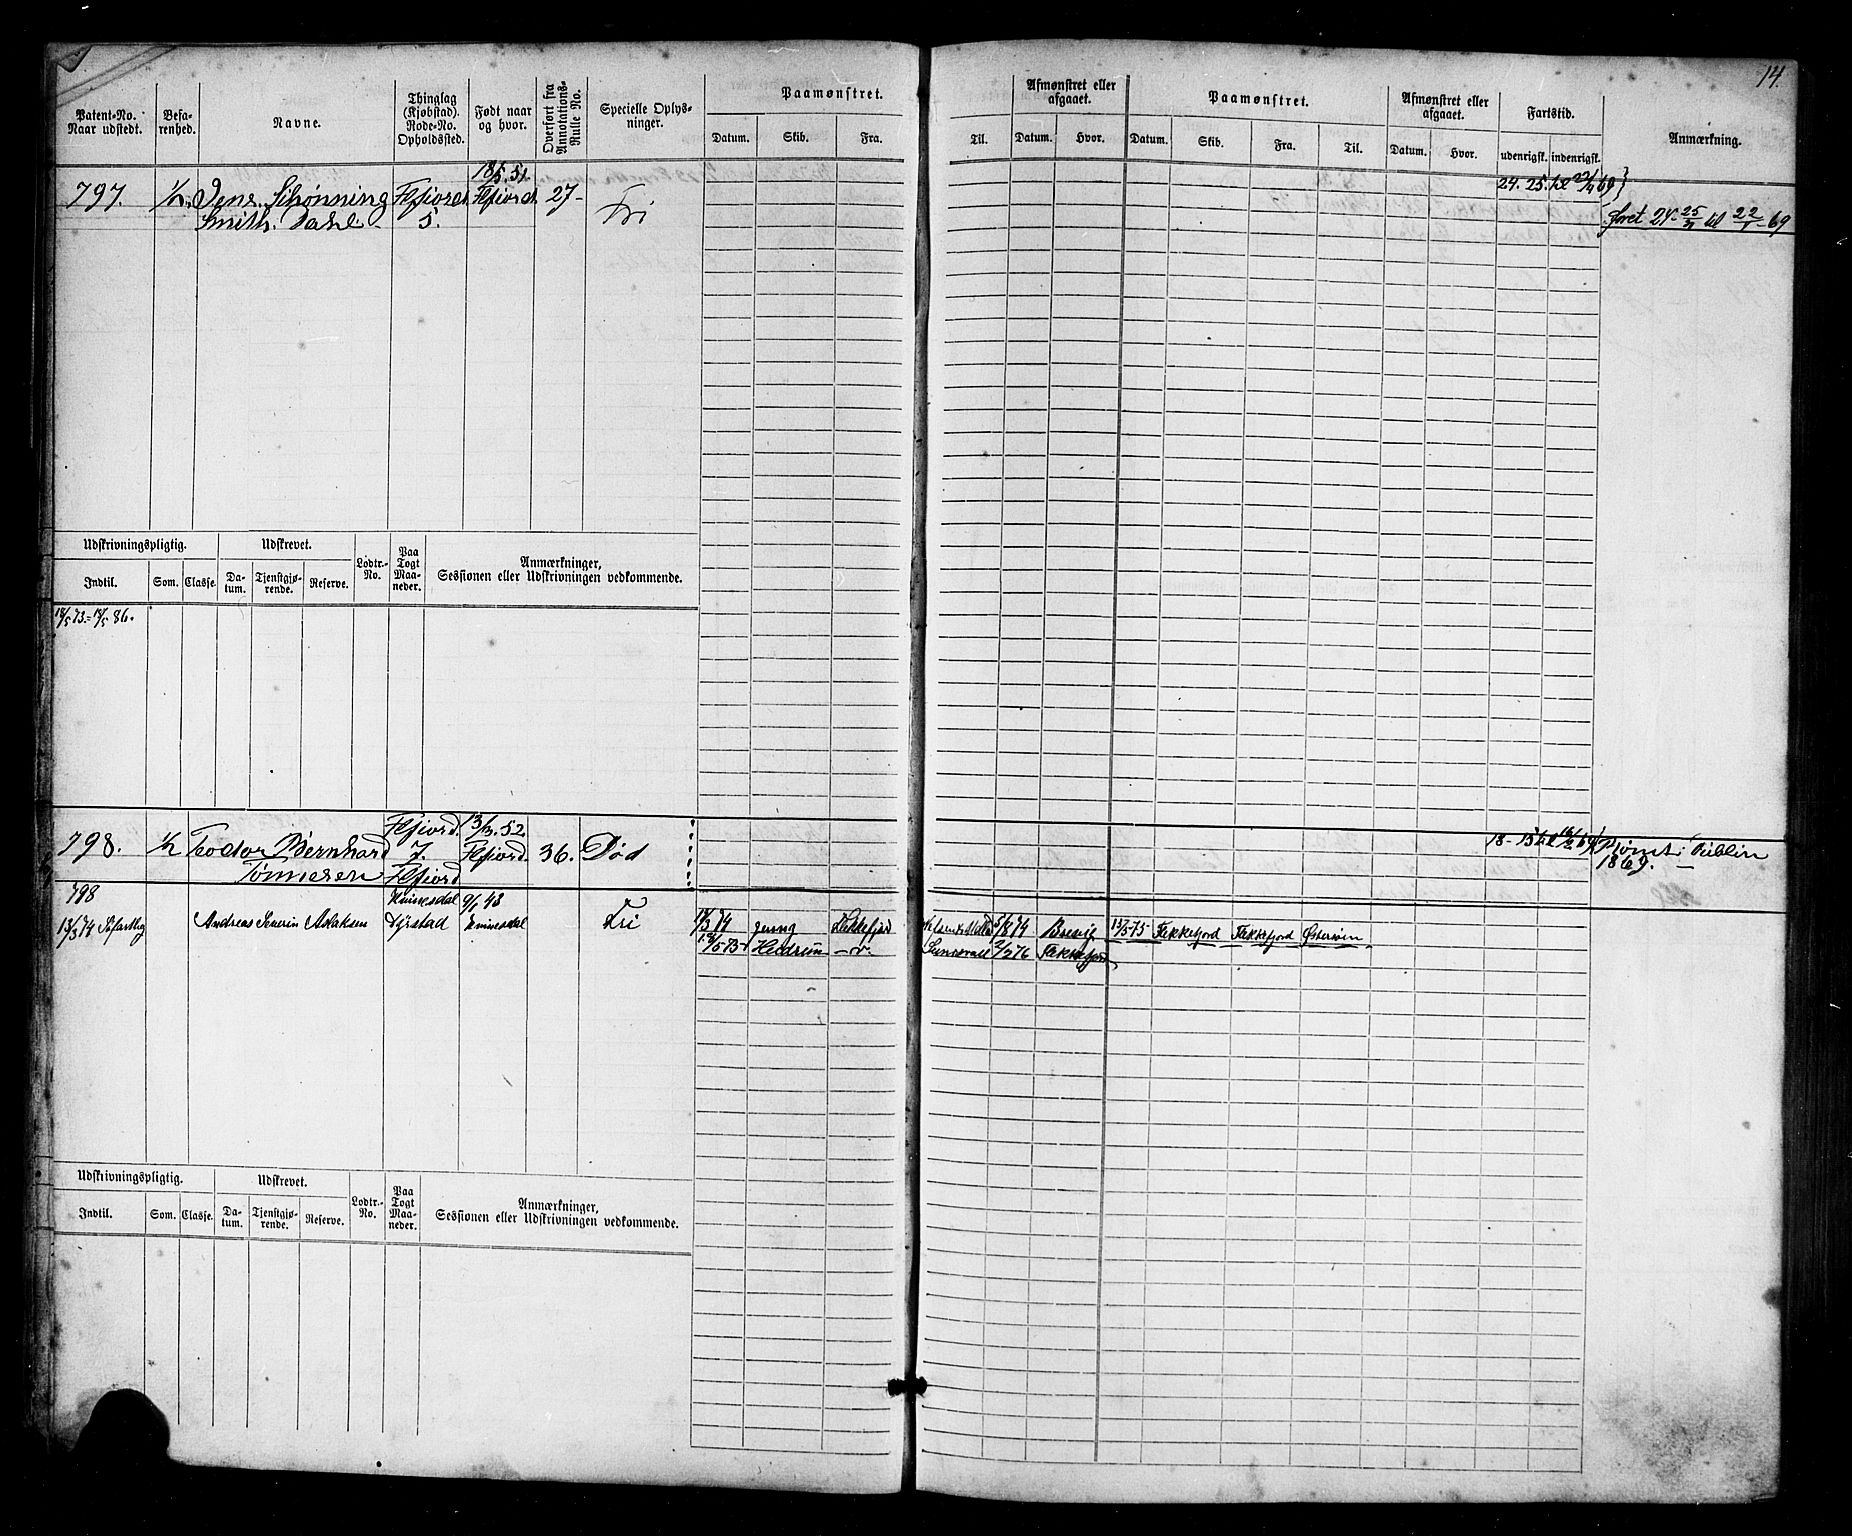 14.
Patent-No. Naar udstedt.
Befarenhed.
Navne.
Thinglag (Kjøbstad). Rode-No. Opholdssted.
Født naar og hvor.
Overført fra Annotations-Rulle No.
Specielle Oplysninger.
Paamønstret.
Datum. Skib. Fra.
Til.
Afmønstret eller afgaaet.
Datum. Hvor.
Paamønstret.
Datum. Skib. Fra. Til.
Afmønstret eller afgaaet.
Datum. Hvor.
Fartstid.
udenrigsk. indenrigsk.
Anmærkning.
18/5. 51
797. 1/2. Jens Schønning Ffjord Ffjord 27- Fri
Smith. Dahl 5.
24. 25. til 22/1 69}
faret 24. til 22/1-69
Udskrivningspligtig.
Udskrevet.
Lodtr.-No.
Paa Togt Maaneder.
Anmærkninger, Sessionen eller Udskrivningen vedkommende.
Indtil. Som. Classe. Datum. Tjenstgjørende. Reserve.
18/5 73.=18/5 86.
Ffjord. 13/3. 52
798. 1/2 Teodor Bernhard 7. Ffjord. 36. Død
Tønnesen Ffjord
Rømt i Dublin
1869.
798 Kvinesdal 9/1 48
13/3 74 Andreas Severin Aslaksen Kvinesdal Fri
74 Flekkefjord 5/8 74 Brevig 13/5-75 Flekkefjord Flekkefjord Østersøen
Hedrun 2/2 76 Flekkefjord
Udskrivningspligtig.
Udskrevet.
Lodtr.-No.
Paa Togt Maaneder.
Anmærkninger, Sessionen eller Udskrivningen vedkommende.
Indtil. Som. Classe. Datum. Tjenstgjørende. Reserve.